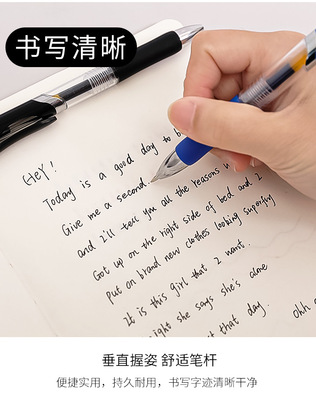 书写清晰
HEY!
Today is a good day to b
Give me a second.
and I'll tell you all the reasons w
Got up on the right side of bed and I
Put on brand new clothes looking superfly
It is this girl that I want.
right she says she's alone
t that day.
Ohh
垂直握姿 舒适笔杆
便捷实用，持久耐用，书写字迹清晰干净